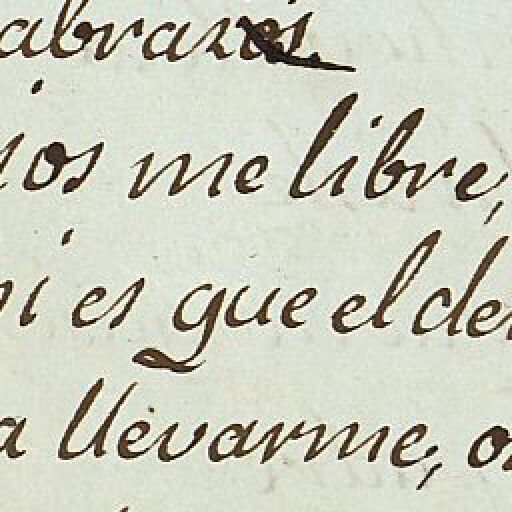 abrazos.
ios me libre,
i es que el de
a llevarme, o